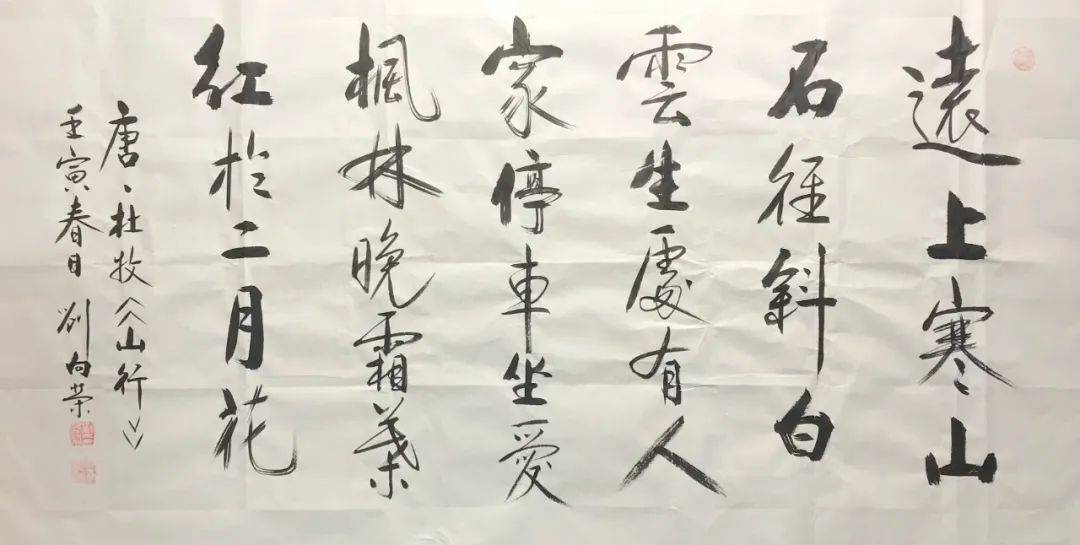 遠上寒山
石徑斜白
雲生處有人
家停車坐愛
楓林晚霜葉
紅於二月花
唐、杜牧《山行》
壬寅春日 劉向荣